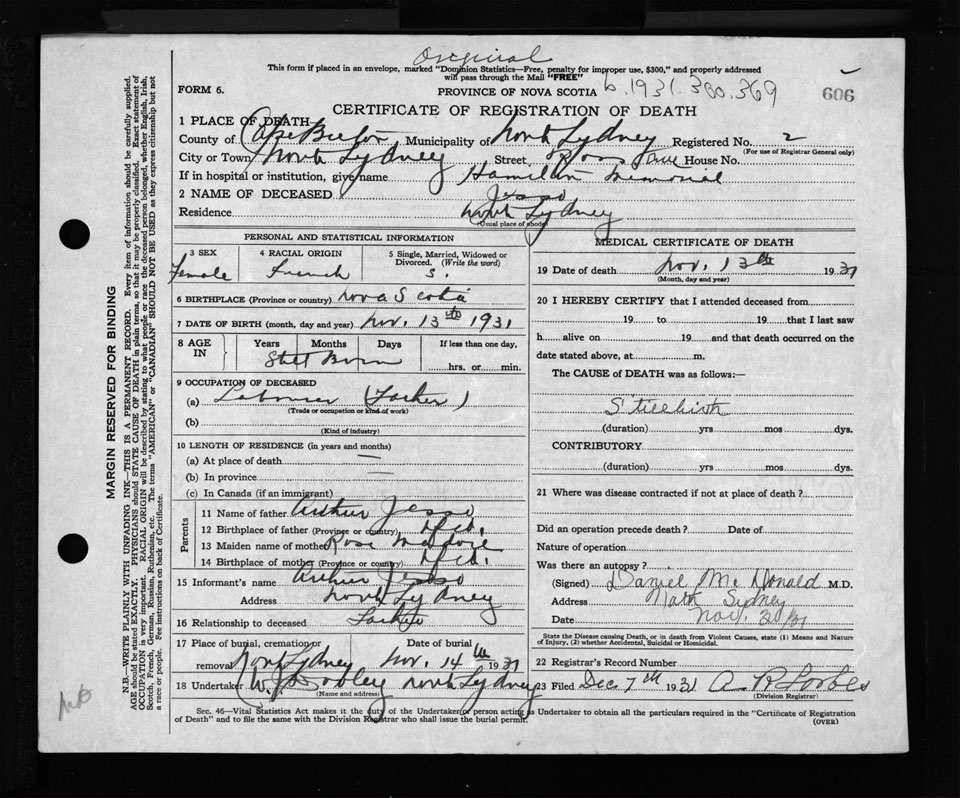 Original
This form if placed in an envelope, marked "Dominion Statistics—Free, penalty for improper use, $300," and properly addressed
will pass through the Mail "FREE"
FORM 6.
PROVINCE OF NOVA SCOTIA b.1931.380,369
606
CERTIFICATE OF REGISTRATION OF DEATH
1 PLACE OF DEATH
County of Cape Breton Municipality of North Sydney Registered No. 2
(For use of Registrar General only)
City or Town North Sydney Street, Ross House No.
If in hospital or institution, give name Hamilton Memorial
2 NAME OF DECEASED Jesso
Residence North Sydney
(Usual place of abode)
PERSONAL AND STATISTICAL INFORMATION
3 SEX
Female
4 RACIAL ORIGIN
French
5 Single, Married, Widowed or
Divorced. (Write the word)
S.
6 BIRTHPLACE (Province or country) Nova Scotia
7 DATE OF BIRTH (month, day and year) Nov. 13th 1931
8 AGE
IN
Years Months Days If less than one day,
Still Born
hrs. or min.
9 OCCUPATION OF DECEASED
(a) Labourer (Father)
(Trade or occupation or kind of work)
(b)
(Kind of industry)
10 LENGTH OF RESIDENCE (in years and months)
(a) At place of death —
(b) In province —
(c) In Canada (if an immigrant)
Parents
11 Name of father Arthur Jesso
12 Birthplace of father (Province or country) Nfld.
13 Maiden name of mother Rose
14 Birthplace of mother (Province or country) Nfld.
15 Informant's name Arthur Jesso
Address North Sydney
16 Relationship to deceased Father
17 Place of burial, cremation or
removal North Sydney
Date of burial
Nov. 14th 1931
18 Undertaker W. J. North Sydney
(Name and address)
MEDICAL CERTIFICATE OF DEATH
19 Date of death Nov. 13th 1931
(Month, day and year)
20 I HEREBY CERTIFY that I attended deceased from
19 to 19 that I last saw
h alive on 19 and that death occurred on the
date stated above, at m.
The CAUSE of DEATH was as follows:—
Stillbirth
(duration) yrs mos dys.
CONTRIBUTORY
(duration) yrs. mos dys.
21 Where was disease contracted if not at place of death?
Did an operation precede death? Date of
Nature of operation
Was there an autopsy?
(Signed) Daniel McDonald M.D.
Address North Sydney
Date Nov. 31
State the Disease causing Death, or in death from Violent Causes, state (1) Means and Nature
of Injury, (2) whether Accidental, Suicidal or Homicidal.
22 Registrar's Record Number
23 Filed Dec 7th 1931 A R Forbes
(Division Registrar)
Sec. 46—Vital Statistics Act makes it the duty of the Undertaker or person acting as Undertaker to obtain all the particulars required in the "Certificate of Registration
of Death" and to file the same with the Division Registrar who shall issue the burial permit.
(OVER)
MARGIN RESERVED FOR BINDING
N.B.—WRITE PLAINLY WITH UNFADING INK—THIS IS A PERMANENT RECORD. Every item of information should be carefully supplied.
AGE should be stated EXACTLY. PHYSICIANS should STATE CAUSE OF DEATH in plain terms, so that it may be properly classified. Exact statement of
OCCUPATION is very important. RACIAL ORIGIN will be described by stating to what people or race the deceased person belonged, whether English, Irish,
Scotch, French, German, Russian, Ruthenian, etc. The terms "AMERICAN" or "CANADIAN" SHOULD NOT BE USED as they express citizenship but not
a race or people. See instructions on back of Certificate.